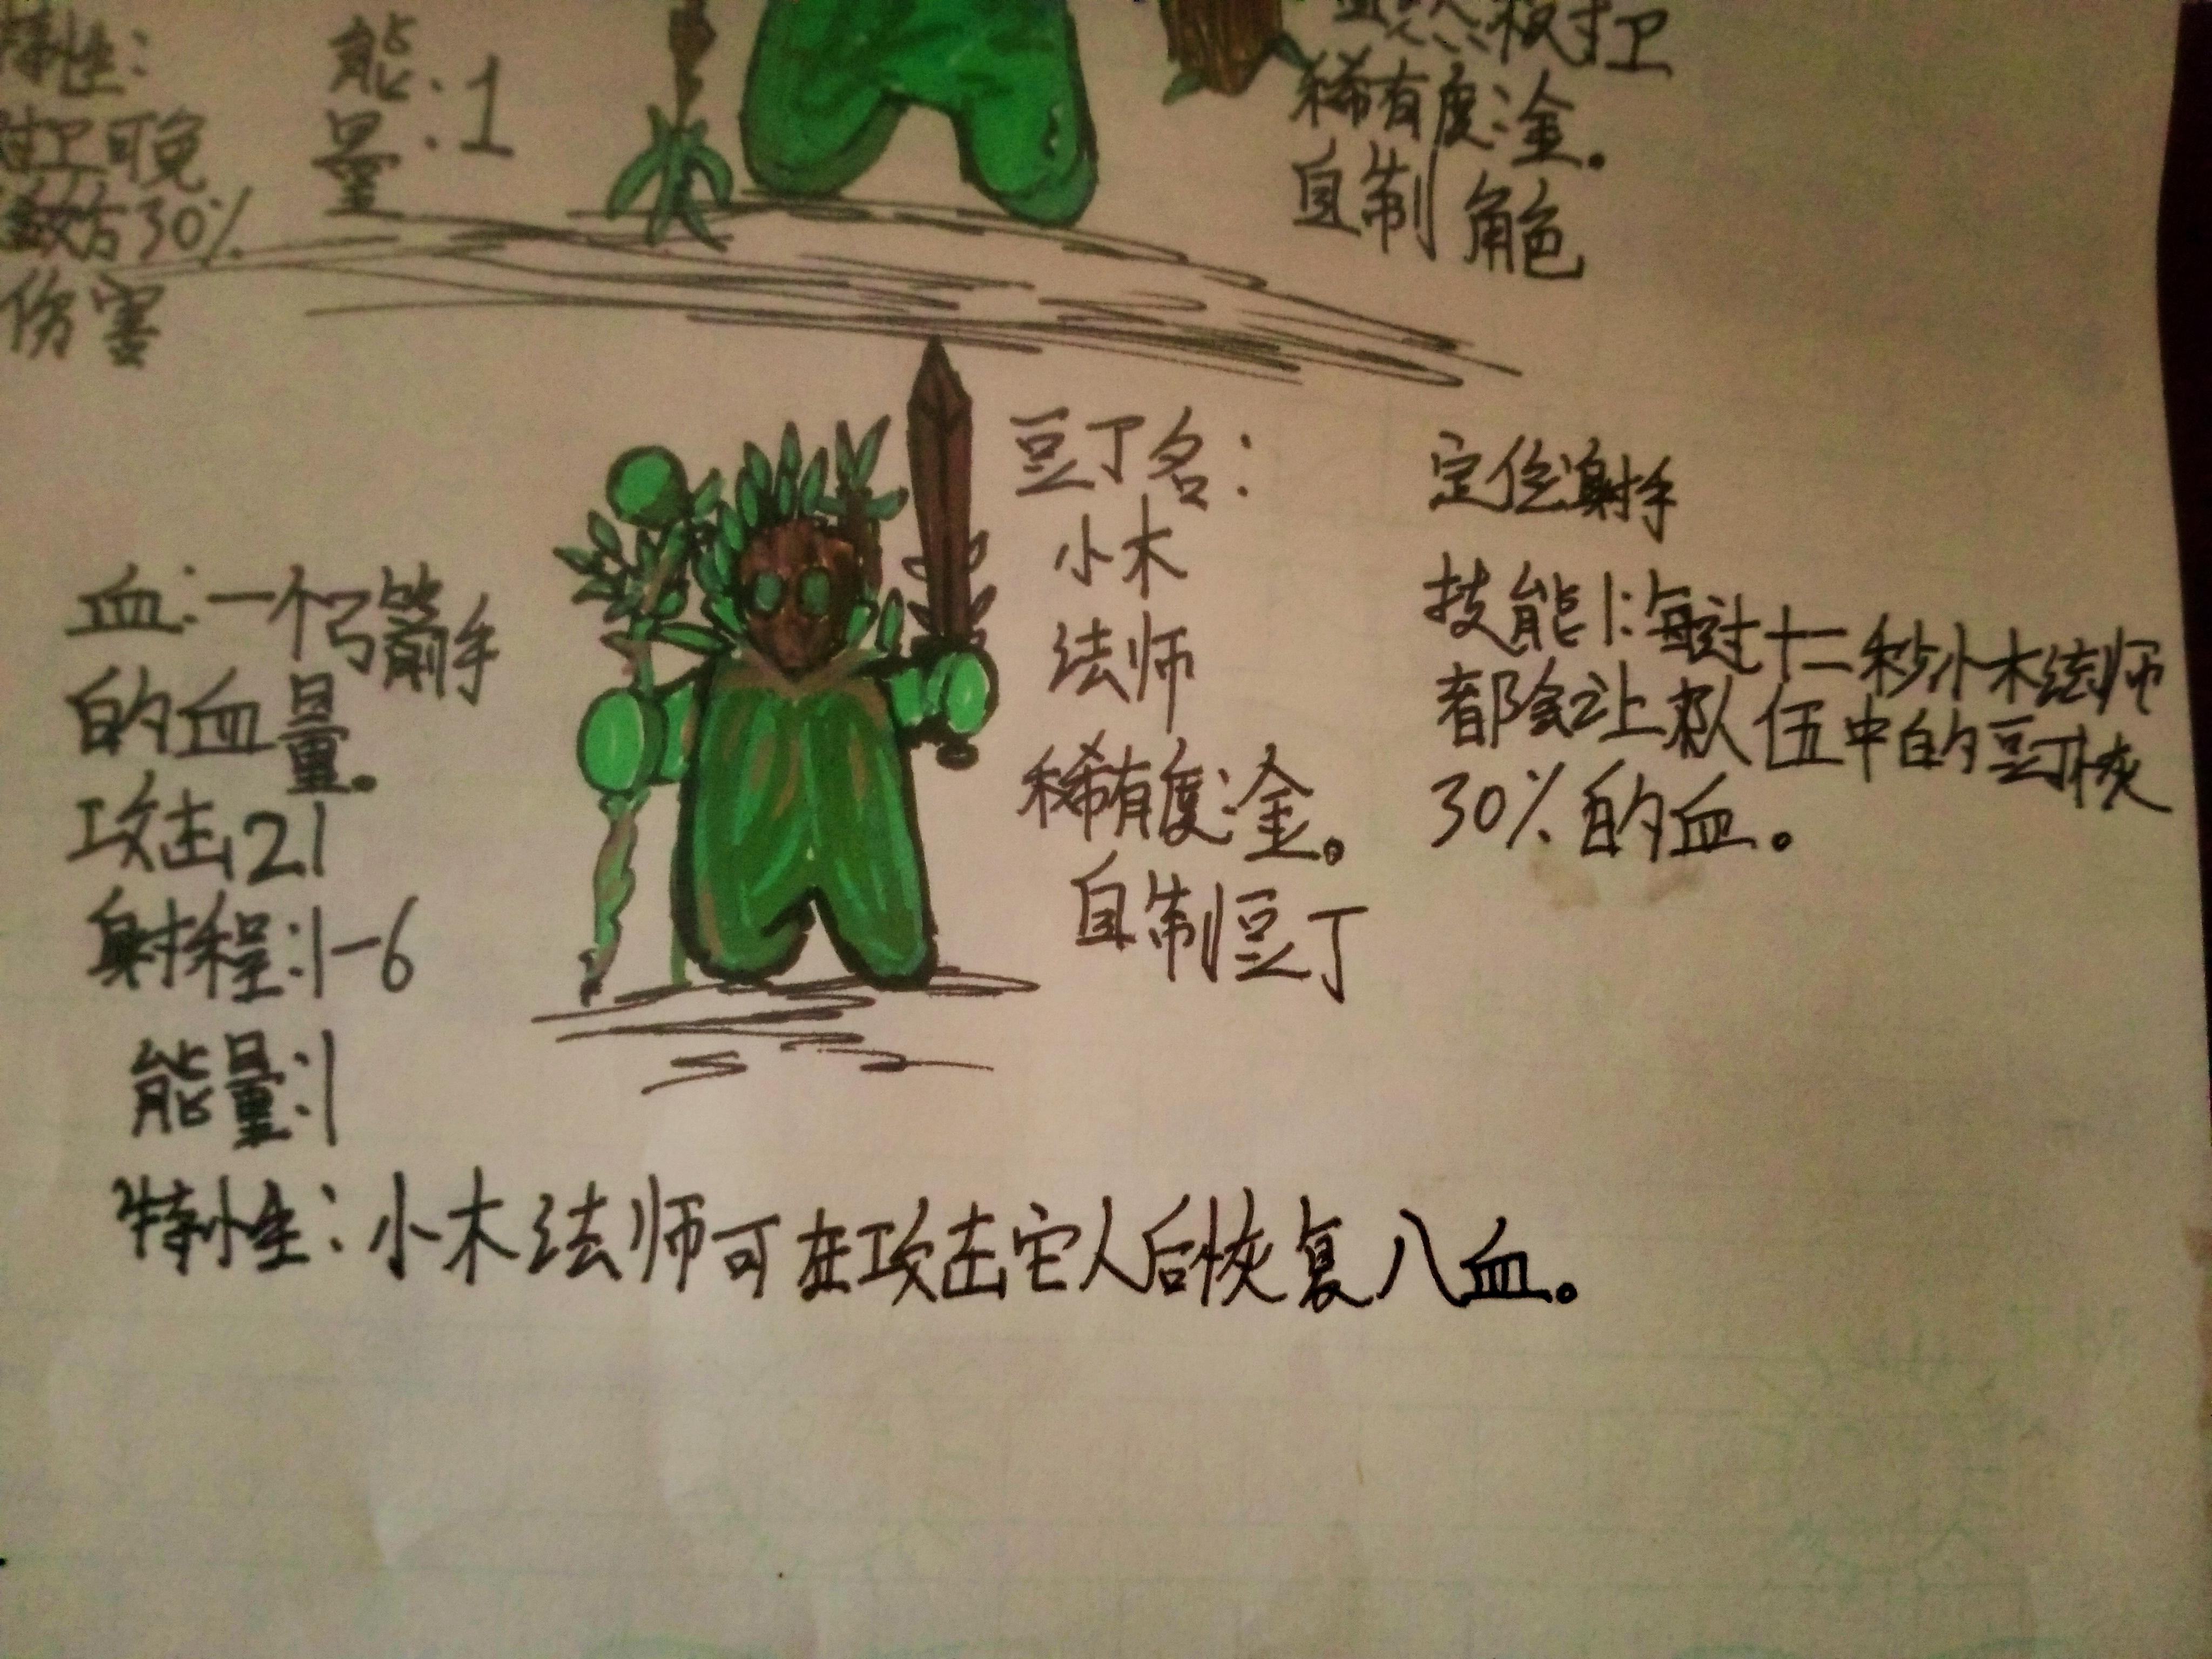 特性:
能量:1
可免
敌方30%
伤害
稀有度:金。
自制 角色
豆丁名:
小木
法师
稀有度:金。
自制豆丁
定位射手
技能1:每过十二秒小木法师
都会让队伍中的豆丁恢
30%的血。
血:一个弓箭手
的血量。
攻击21
射程:1-6
能量:1
特性:小木法师可在攻击它人后恢复八血。